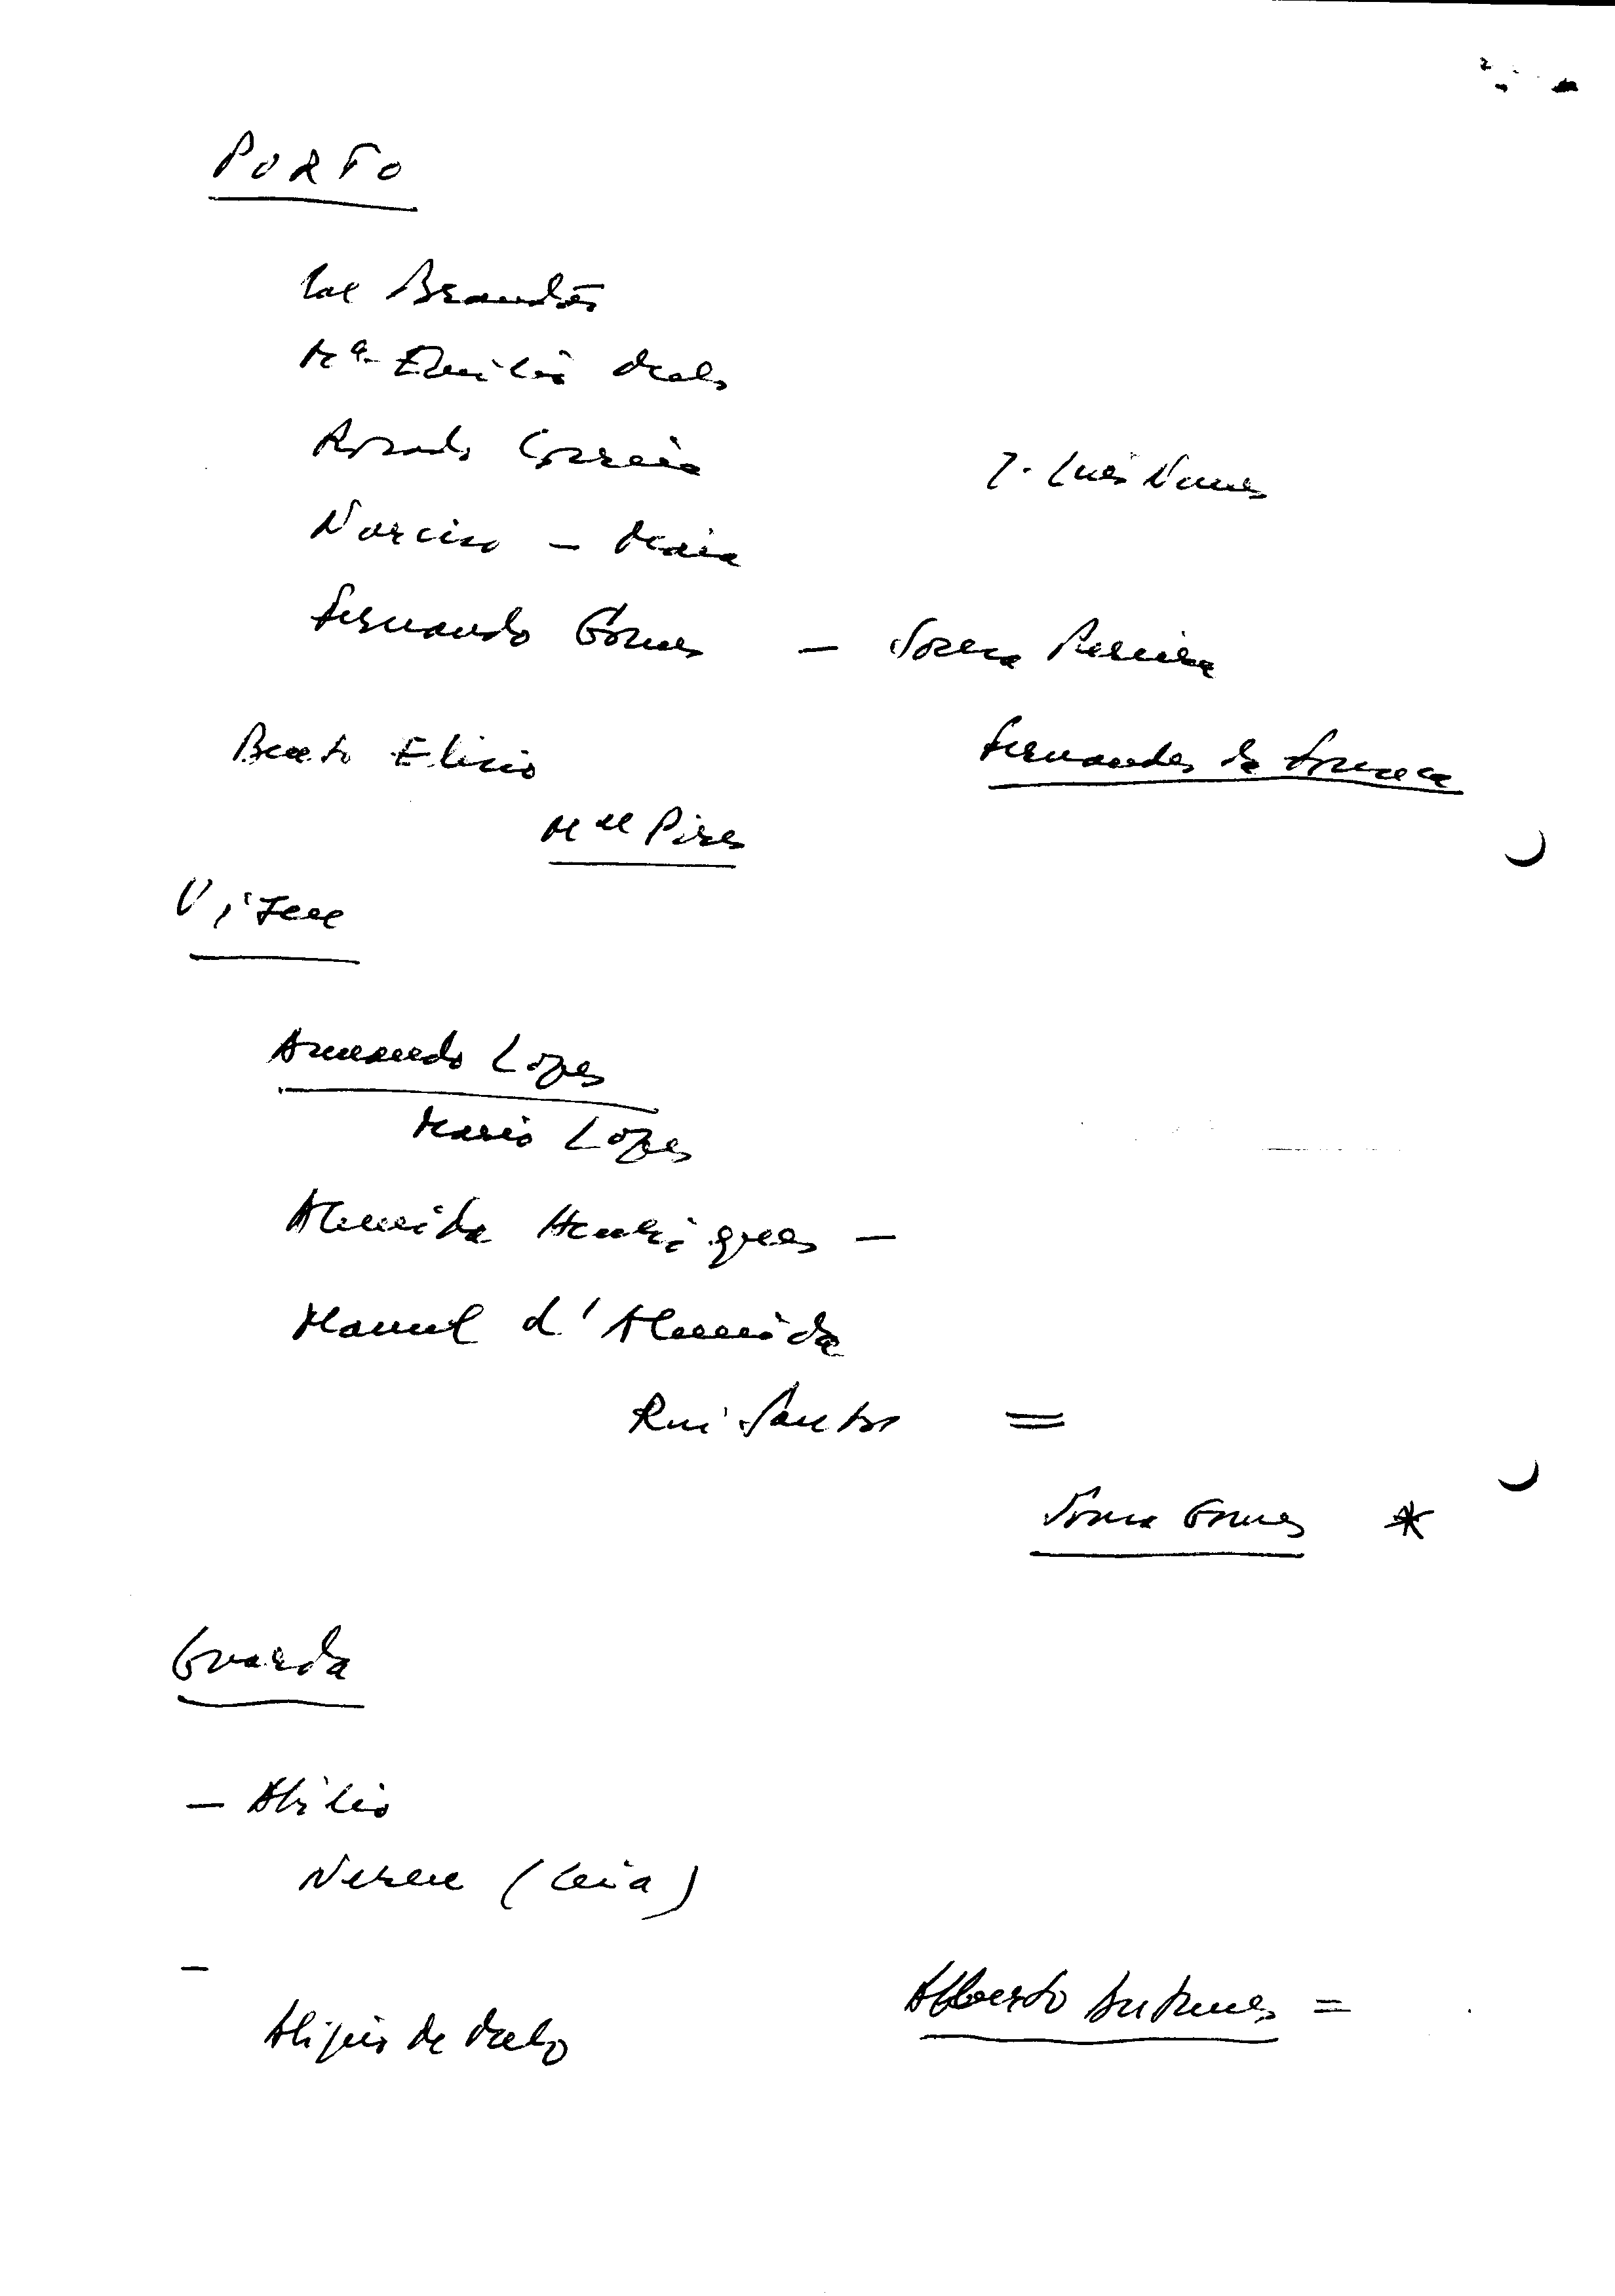 PORTO
Cal Brandão
Mª Emília Melo
Rosado Correia
J. Luís Nunes
Narciso – Maia
Fernando Gomes – Sousa Pereira
Bento Elísio
Fernandes da Fonseca
Mel Pires
Viseu
Armando Lopes
Mário Lopes
Almeida Henriques –
Manuel d'Almeida
Rui Santos =
Sousa Gomes *
Guarda
– Abílio
(Ceia)
–
Alípio de Melo
Alberto Antunes =